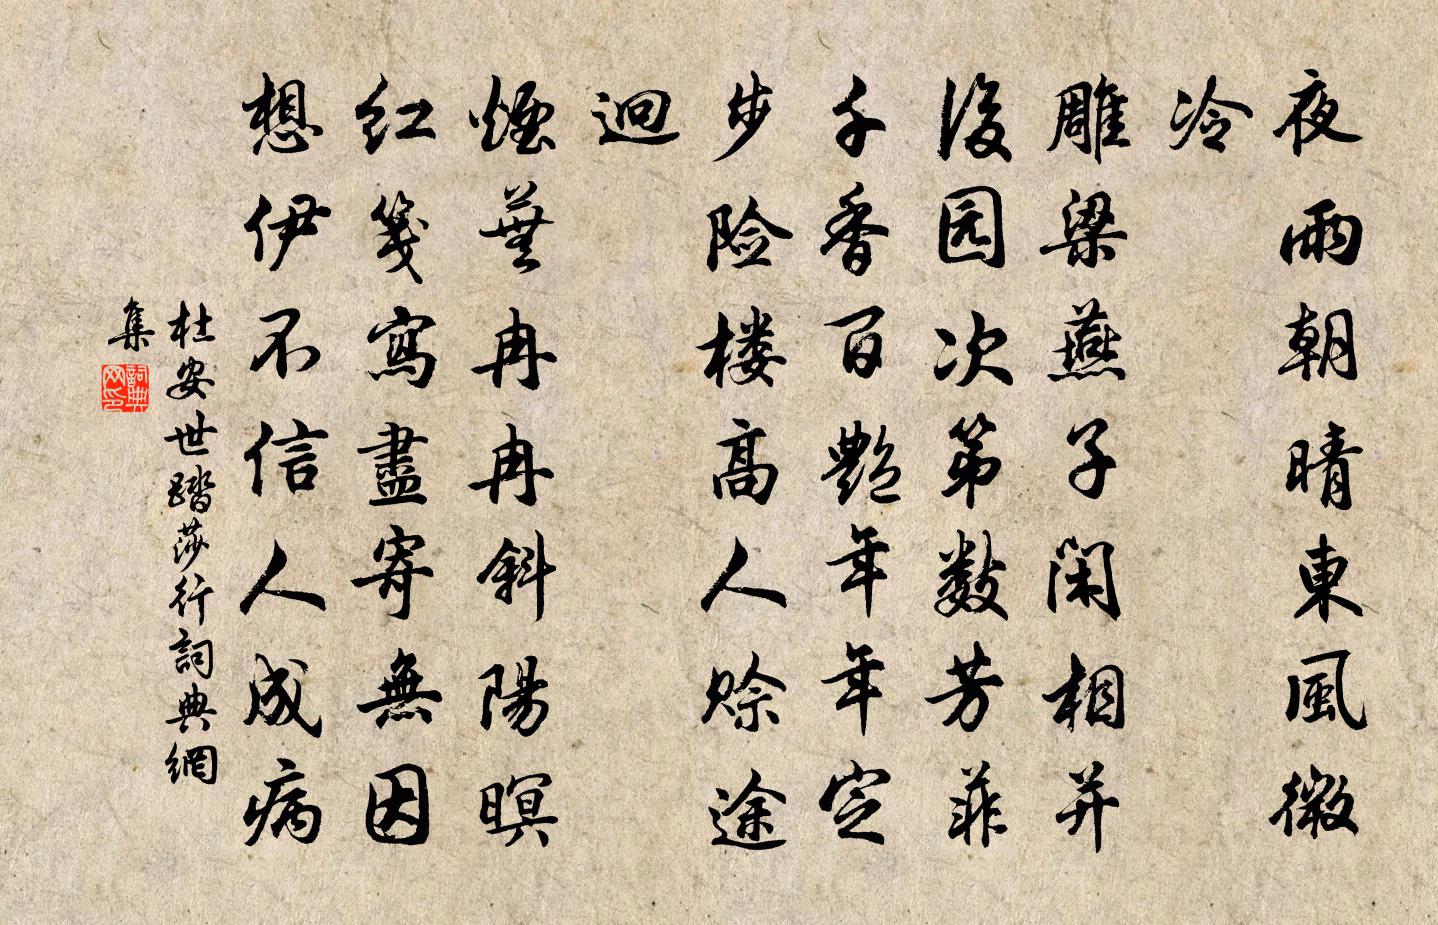 夜雨朝晴東風微
冷
雕梁燕子閑相并
後园次第數芳菲
千香百艷年年定
步险楼高人赊途
迥
煙蕪冉冉斜陽暝
红箋寫盡寄無因
想伊不信人成病
杜安世踏莎行詞典網
集
詞典网印